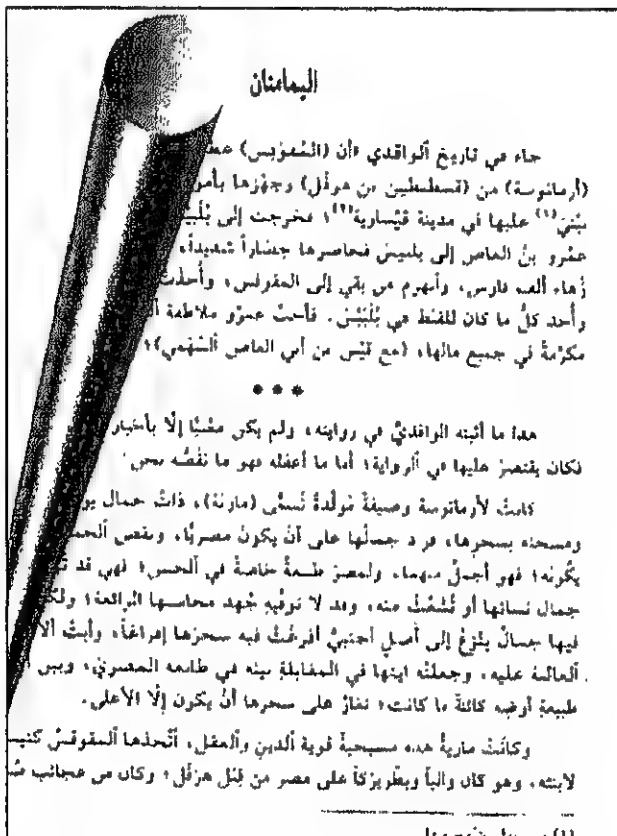 اليمامتان
جاء في تاريخ الواقدي «أن (المقوقس)
(أرمانوسة) من (قسطنطين بن هرقل) وجهّزها
عليها في مدينة قيسارية(٢)؛ فخرجت إلى
عمرو بن العاص إلى بلبيس فحاصرها حصاراً شديداً،
زُهاء ألف فارس، وانهزم من بقي إلى المقوقس، وأُخذت
وأخذ كلُّ ما كان للقبط في بُلْبَيْس. فأحبَّ عمرو ملاطفة
مكرّمةً في جميع مالها، (مع قيس بن أبي العاص السهمي)؛
***
هذا ما أثبته الواقديُّ في روايته، ولم يكن معنيًّا إلّا بأخبار
فكان يقتصر عليها في الرواية؛ أما ما أغفله فهو ما نقُصُّه نحن:
كانتْ لأرمانوسة وصيفةٌ مُولَّدةٌ تُسمَّى (مارية)، ذاتُ جمال
ومسحته بسحرها، فزاد جمالُها على أنْ يكونَ مصريًّا، ونقص
يكُونَه؛ فهو أجملُ منهما، ولمصرَ طبيعةٌ خاصةٌ في الحسن؛ فهي قد
جمال نسائها أو تُشَعِّثُ منه، وقد لا توفِّيهِ جُهدَ محاسنها الرائعة؛
فيها جمالٌ يَنْزِعُ إلى أصلٍ أجنبيٍّ أفرغتْ فيه سحرَها إفراغاً، وأبتْ
الغالبة عليه، وجعلتْه آيتها في المقابلةِ بينه في طابعه المصريِّ، وبين
طبيعةِ أرضِه كائنةً ما كانت؛ تغارُ على سحرها أنْ يكون إلّا الأعلى.
وكانَتْ ماريةُ هذه مسيحيةً قوية الدينِ والعقل، اتّخذها المقوقسُ
لابنته، وهو كان والياً وبطريركاً على مصر من قِبَل هرَقْل؛ وكان من عجائب